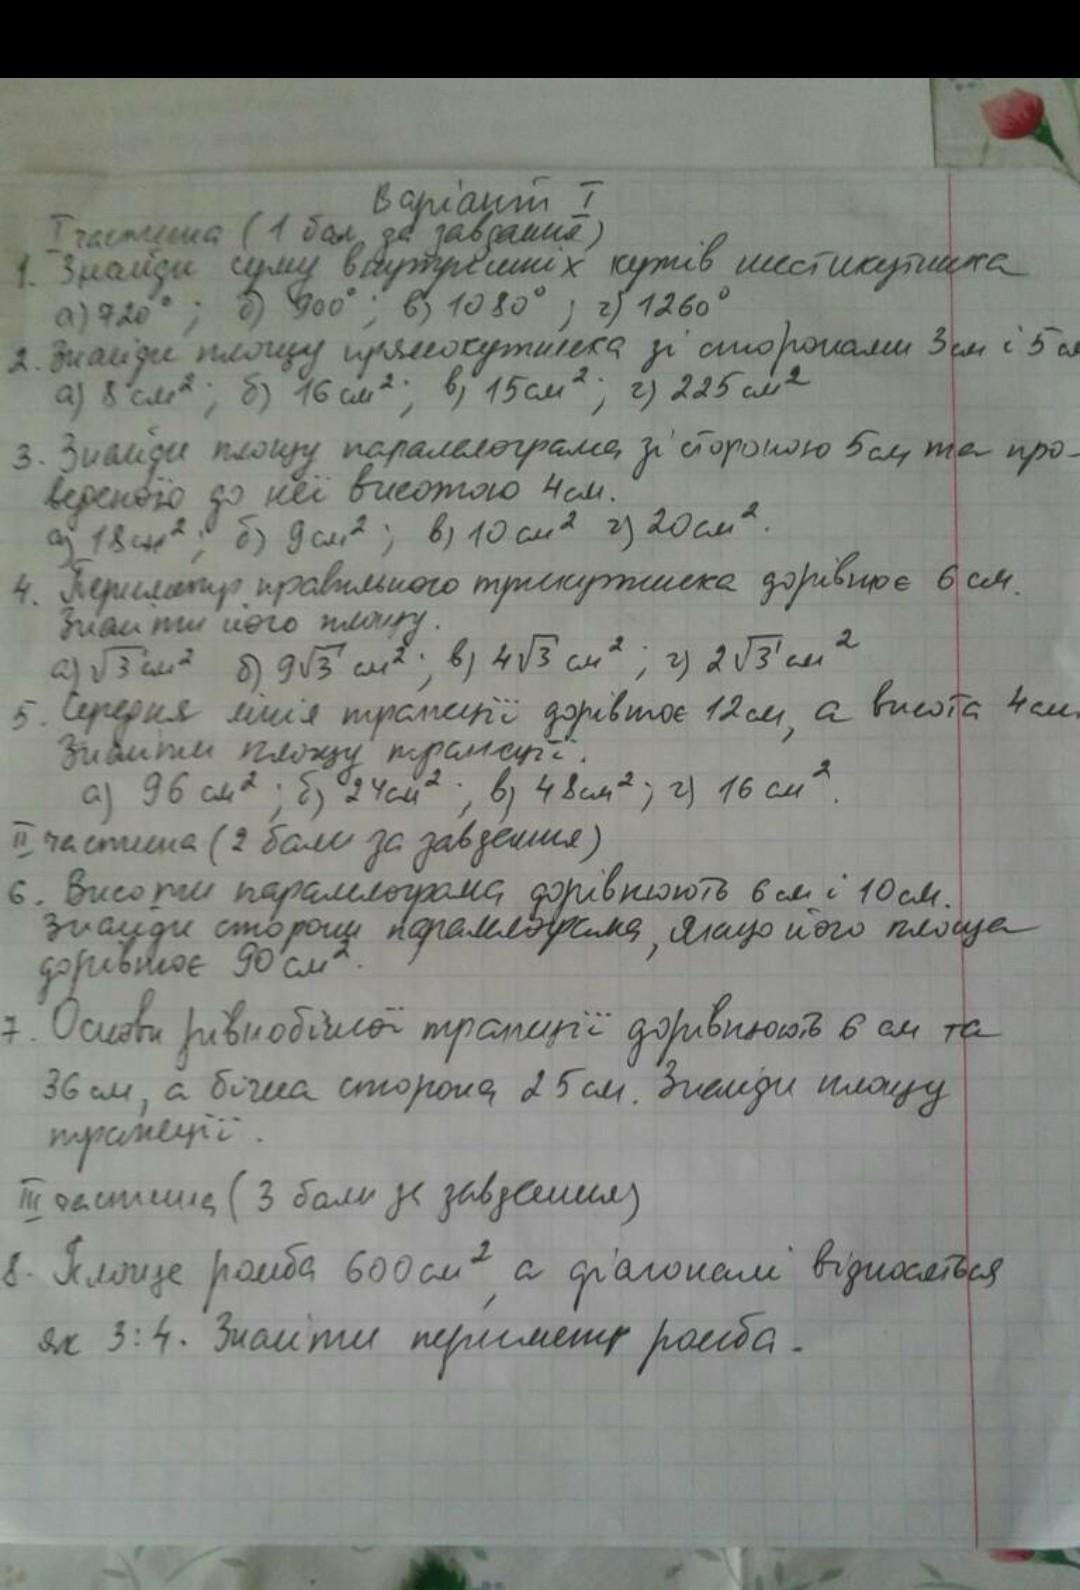 Варіант I
I частина (1 бал за завдання)
1. Знайди суму внутрішніх кутів шестикутника
а) 720°; б) 900°; в) 1080°; г) 1260°
2. Знайди площу прямокутника зі сторонами 3см і 5см
а) 8 см²; б) 16 см²; в) 15см²; г) 225см²
3. Знайди площу паралелограма зі стороною 5см та про-
веденою до неї висотою 4см.
а) 18см²; б) 9см²; в) 10см² г) 20см².
4. Периметр правильного трикутника дорівнює 6 см.
Знайти його площу.
а) √3 см² б) 9√3 см²; в) 4√3 см²; г) 2√3 см²
5. Середня лінія трапеції дорівнює 12см, а висота 4см.
Знайти площу трапеції.
а) 96 см²; б) 24см²; в) 48см²; г) 16 см².
II частина (2 бали за завдання)
6. Висоти паралелограма дорівнюють 6 см і 10см.
Знайди сторони паралелограма, якщо його площа
дорівнює 90 см².
7. Основи рівнобічної трапеції дорівнюють 6 см та
36 см, а бічна сторона 25см. Знайди площу
трапеції.
III частина (3 бали за завдання)
8. Площа ромба 600см², а діагоналі відносяться
як 3:4. Знайти периметр ромба.